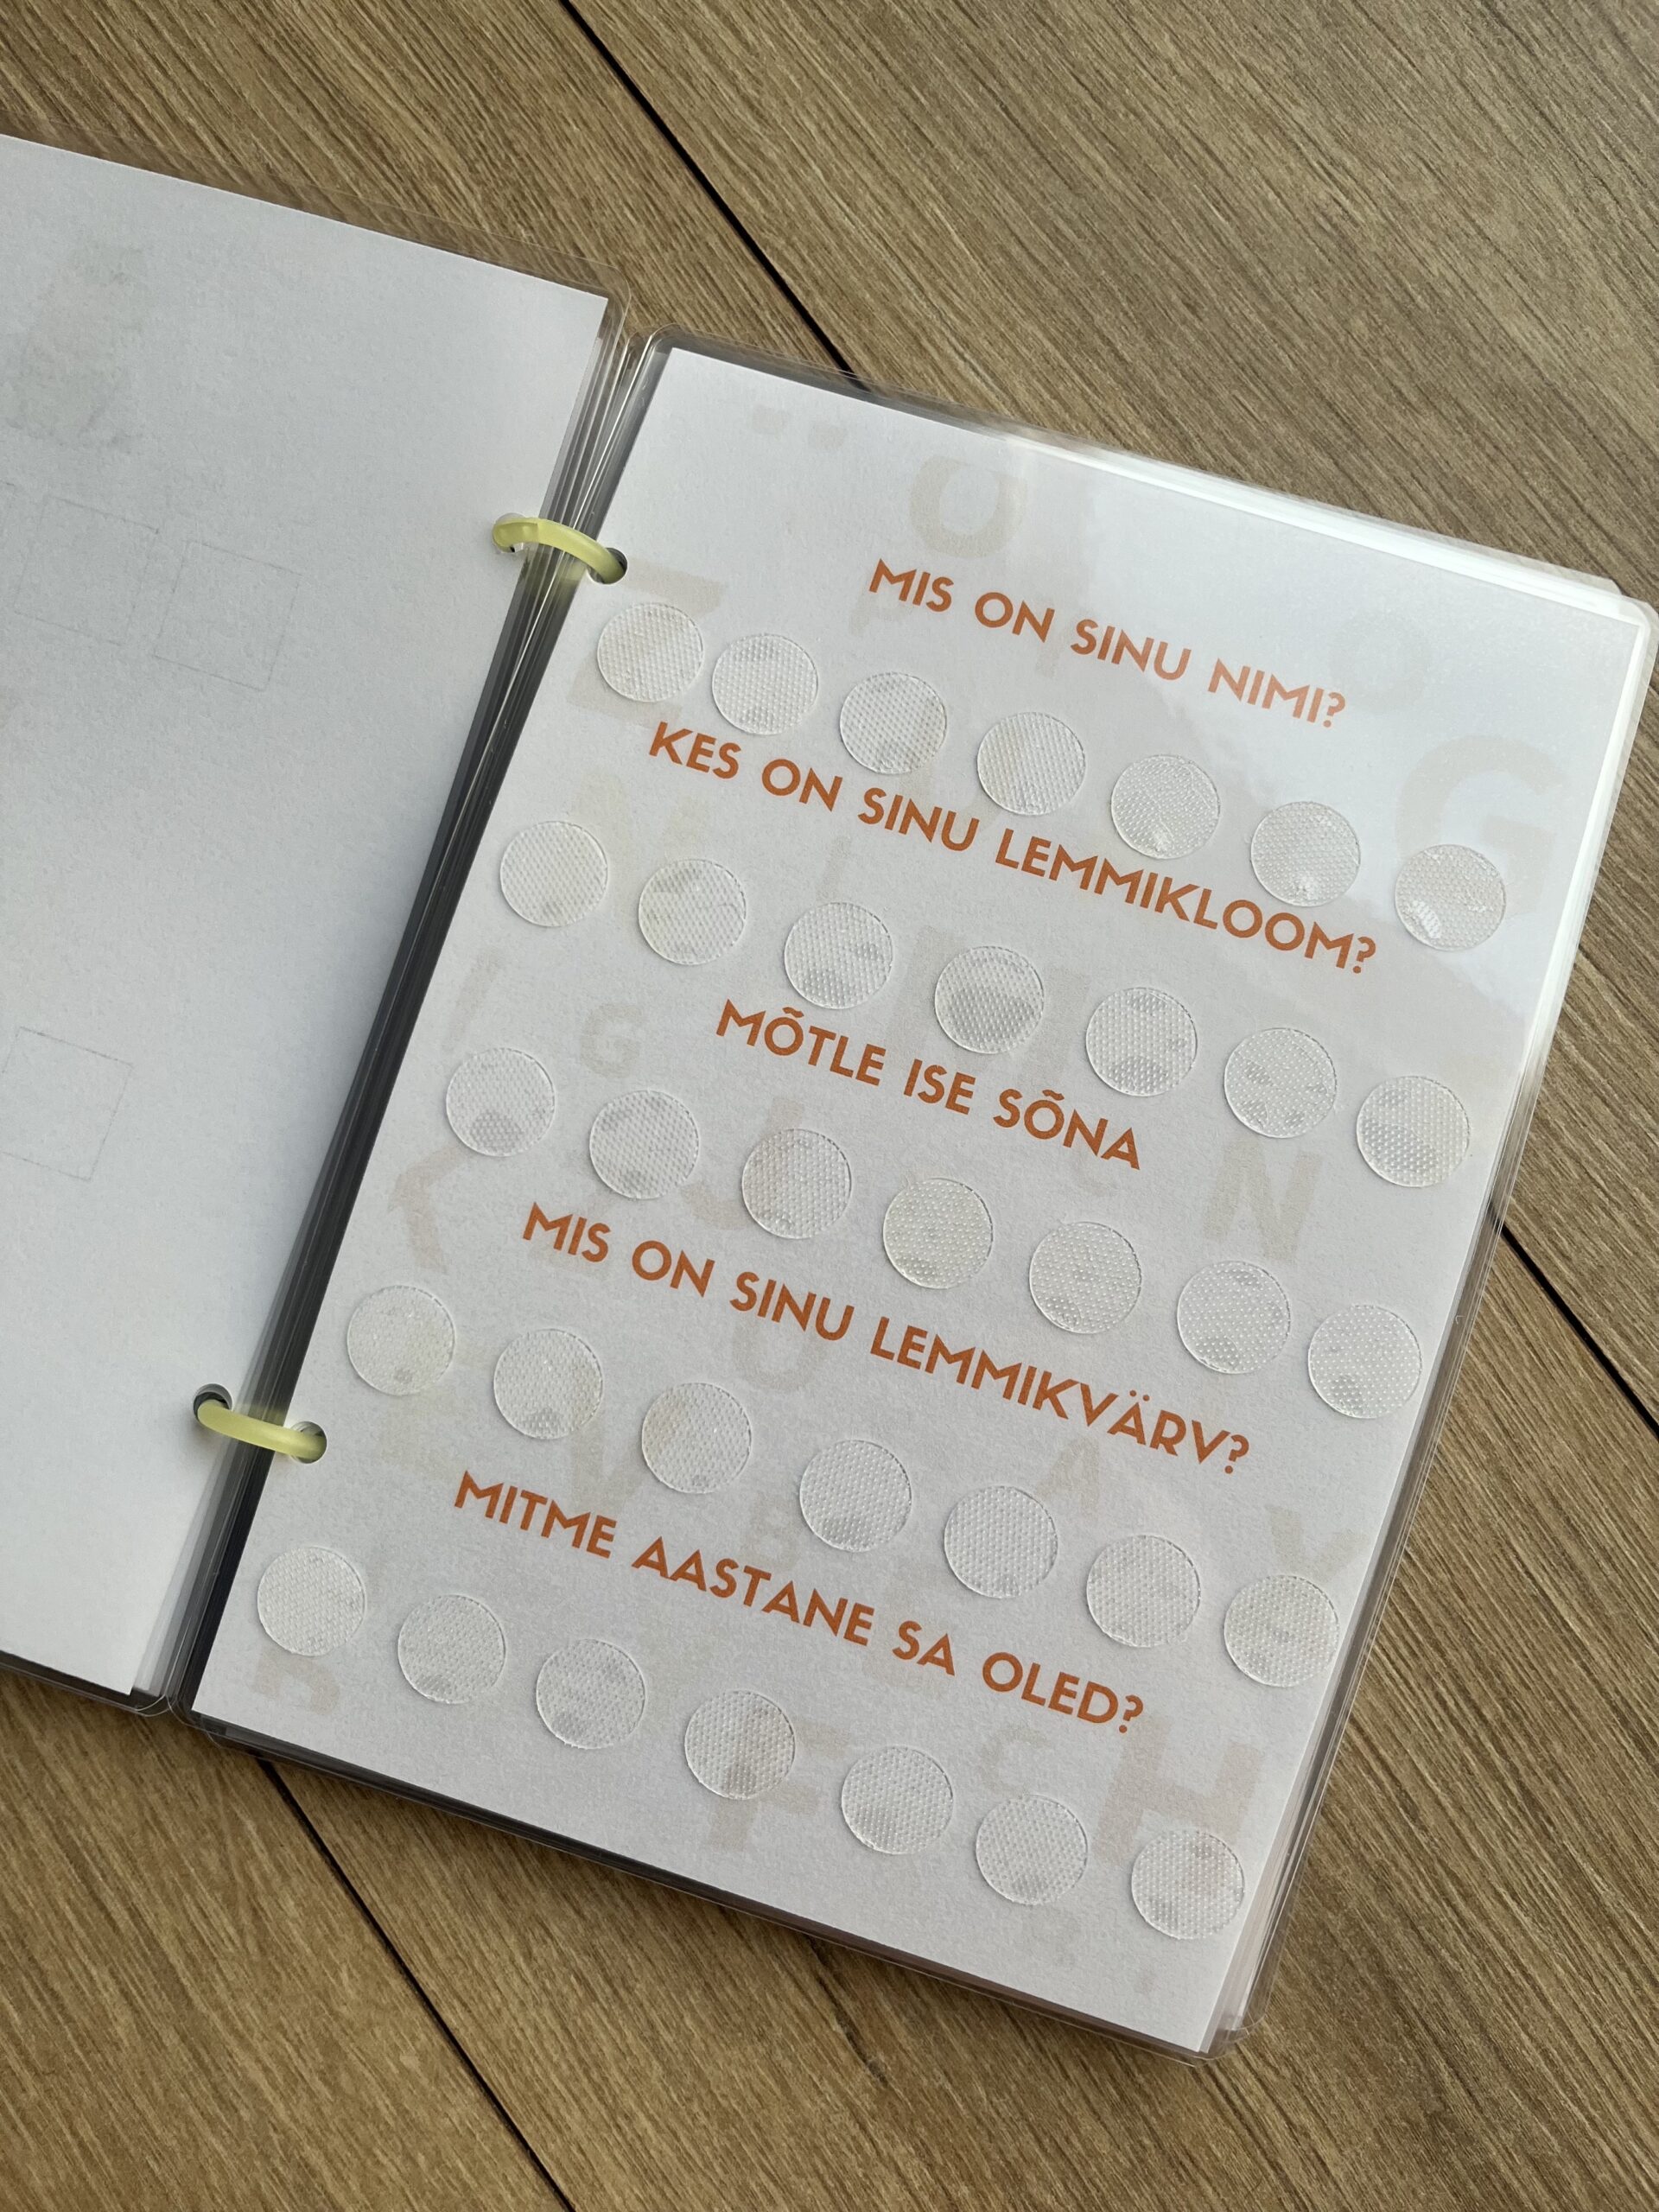 MIS ON SINU NIMI?
KES ON SINU LEMMIKLOOM?
MÕTLE ISE SÕNA
MIS ON SINU LEMMIKVÄRV?
MITME AASTANE SA OLED?